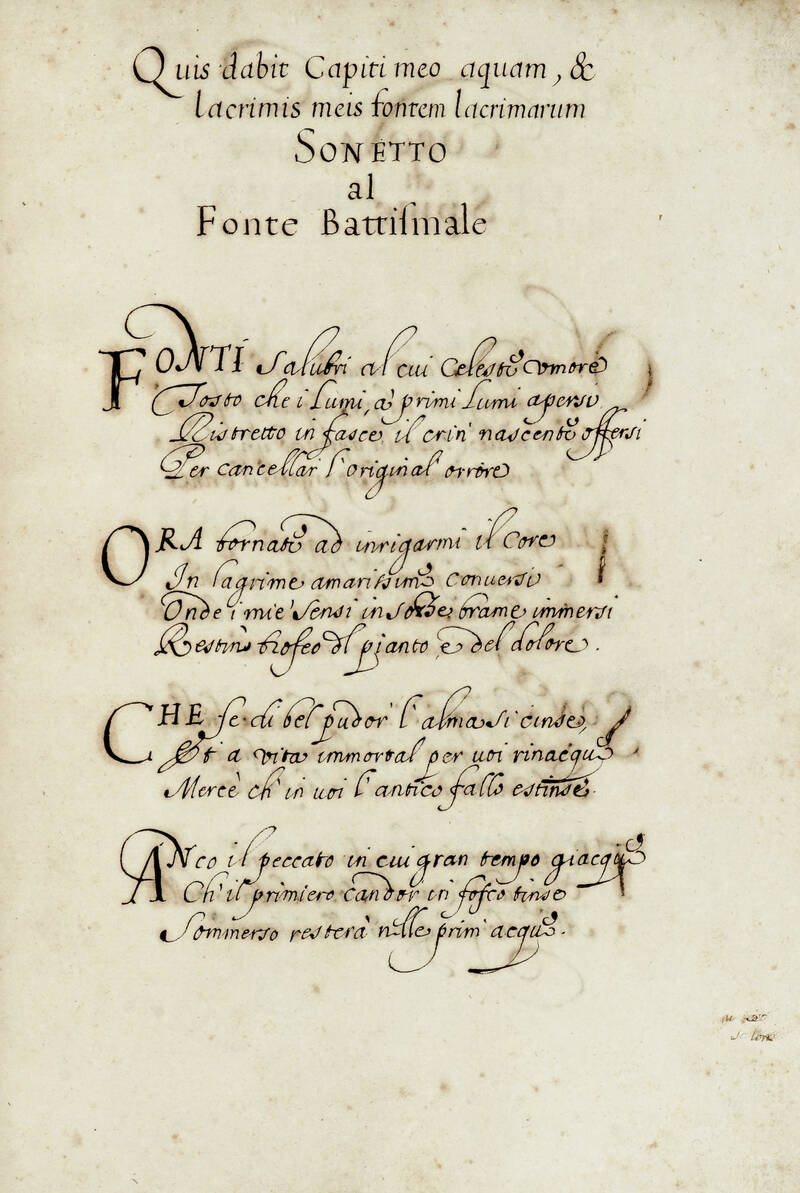 Quis dabit Capiti meo aquam, &
lacrimis meis fontem lacrimarum
SONETTO
al
Fonte Battiſmale
FONTI Salubri al cui Celeste Amore
Tosto che i lumi, a primi lumi apersi
Ristretto in fasce il crin' nascente offersi
Per cancellar l'original errore
ORA tornato ad inrigarmi il Core
In lagrime amarissime conuersi
Onde i miei sensi in
Restin trofeo del pianto e del dolore.
CHE se di bel pudor' l'alma si cinse,
Et a vita immortal per uoi rinacque
Mercè ch'in uoi l'antico fallo estinse.
ANco il peccato in cui gran tempo giacque
Ch'il primiero candor in fosco tinse
Sommerso resterà nelle prim' acque.